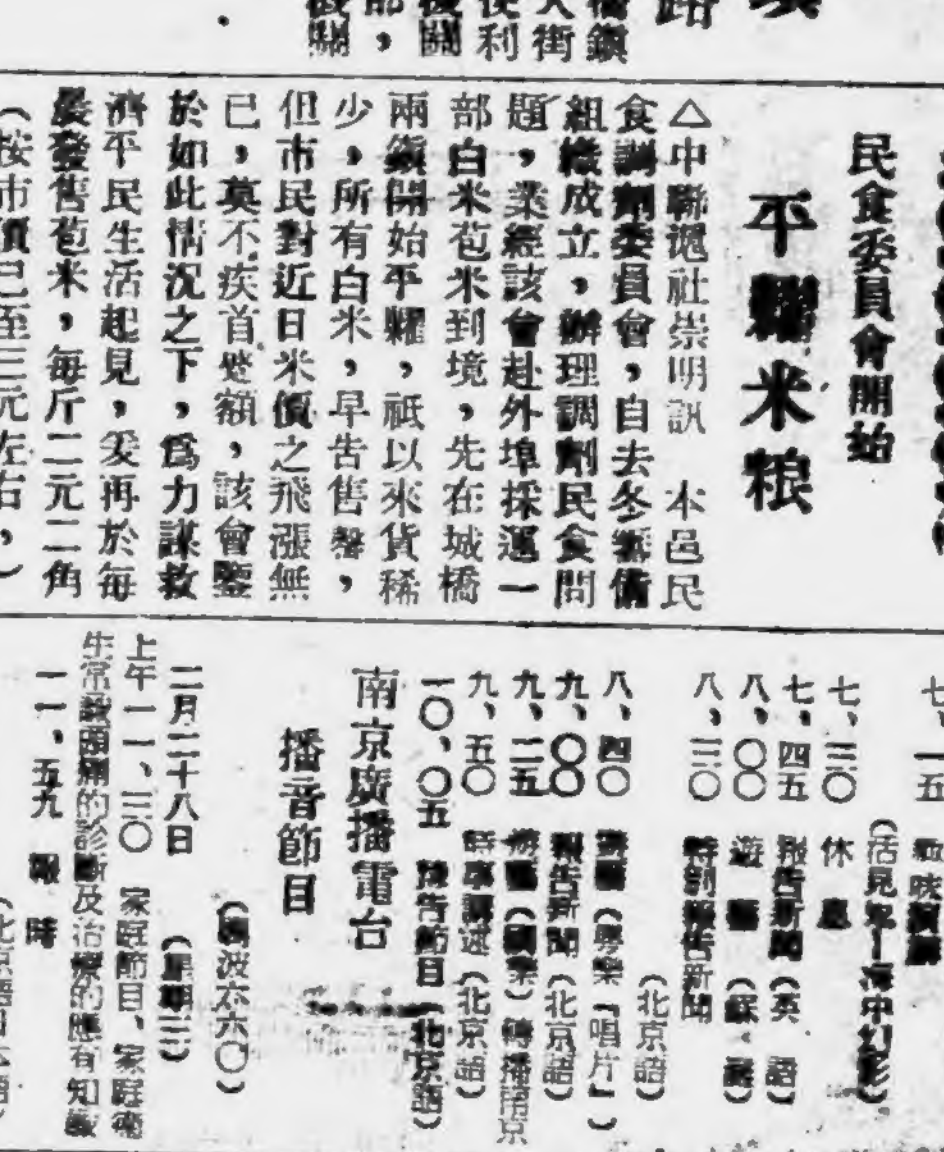 橋鎮
大街
便利
民食委員會開始
平糶米粮
△中聯通社崇明訊　本邑民
食調劑委員會，自去冬籌備
組織成立，辦理調劑民食問
題，業經該會赴外埠採運一
部白米苞米到境，先在城橋
兩鎮開始平糶，祇以來貨稀
少，所有白米，早告售罄，
但市民對近日米價之飛漲無
已，莫不疾首蹙額，該會鑒
於如此情況之下，爲力謀救
濟平民生活起見，爰再於每
晨發售苞米，每斤二元二角
（按市價已至三元左右，）
七、一五
（活見鬼—海中幻影）
七、三〇　休息
七、四五　報告新聞（英語）
八、〇〇　遊藝
八、三〇　特別報告新聞
（北京語）
八、四〇　（粵樂「唱片」）
九、〇〇　報告新聞（北京語）
九、二五　遊藝（國樂）轉播南京
九、五〇　時事講述（北京語）
一〇、〇五　預告節目（北京語）
南京廣播電台
播音節目
（週波六六〇）
二月二十八日　（星期三）
上午一一、三〇　家庭節目、家庭衛
生常識頭痛的診斷及治療的應有知識
一一、五九　報時